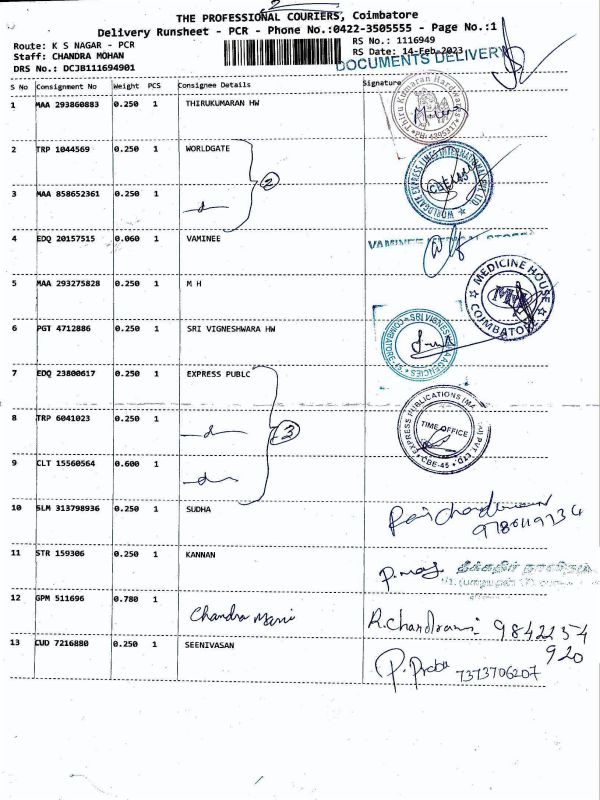 2
THE PROFESSIONAL COURIERS, Coimbatore
Delivery Runsheet - PCR - Phone No.:0422-3505555 - Page No.:1
Route: K S NAGAR - PCR
RS No.: 1116949
Staff: CHANDRA MOHAN
RS Date: 14-Feb-2023
DRS No.: DCJB111694901
DOCUMENTS DELIVERY
S No Consignment No Weight PCS Consignee Details Signature
1 MAA 293860883 0.250 1 THIRUKUMARAN HW
Thiru Kumaran Hardwares
2 TRP 1044569 0.250 1 WORLDGATE
WORLDGATE EXPRESS LINES INTERNATIONAL PVT LTD
CBE-45
3 MAA 858652361 0.250 1
2
4 EDQ 20157515 0.060 1 VAMINEE
VAMINEE
5 MAA 293275828 0.250 1 M H
MEDICINE HOUSE
MH
COIMBATORE
6 PGT 4712886 0.250 1 SRI VIGNESHWARA HW
7 EDQ 23800617 0.250 1 EXPRESS PUBLC
EXPRESS PUBLICATIONS
TIME OFFICE
CBE-45
8 TRP 6041023 0.250 1
3
9 CLT 15560564 0.600 1
10 SLM 313798936 0.250 1 SUDHA
11 STR 159306 0.250 1 KANNAN
12 GPM 511696 0.780 1 Chandra Mani
R.Chandramani 9842254
920
13 CUD 7216880 0.250 1 SEENIVASAN
P. Praba 7373706207